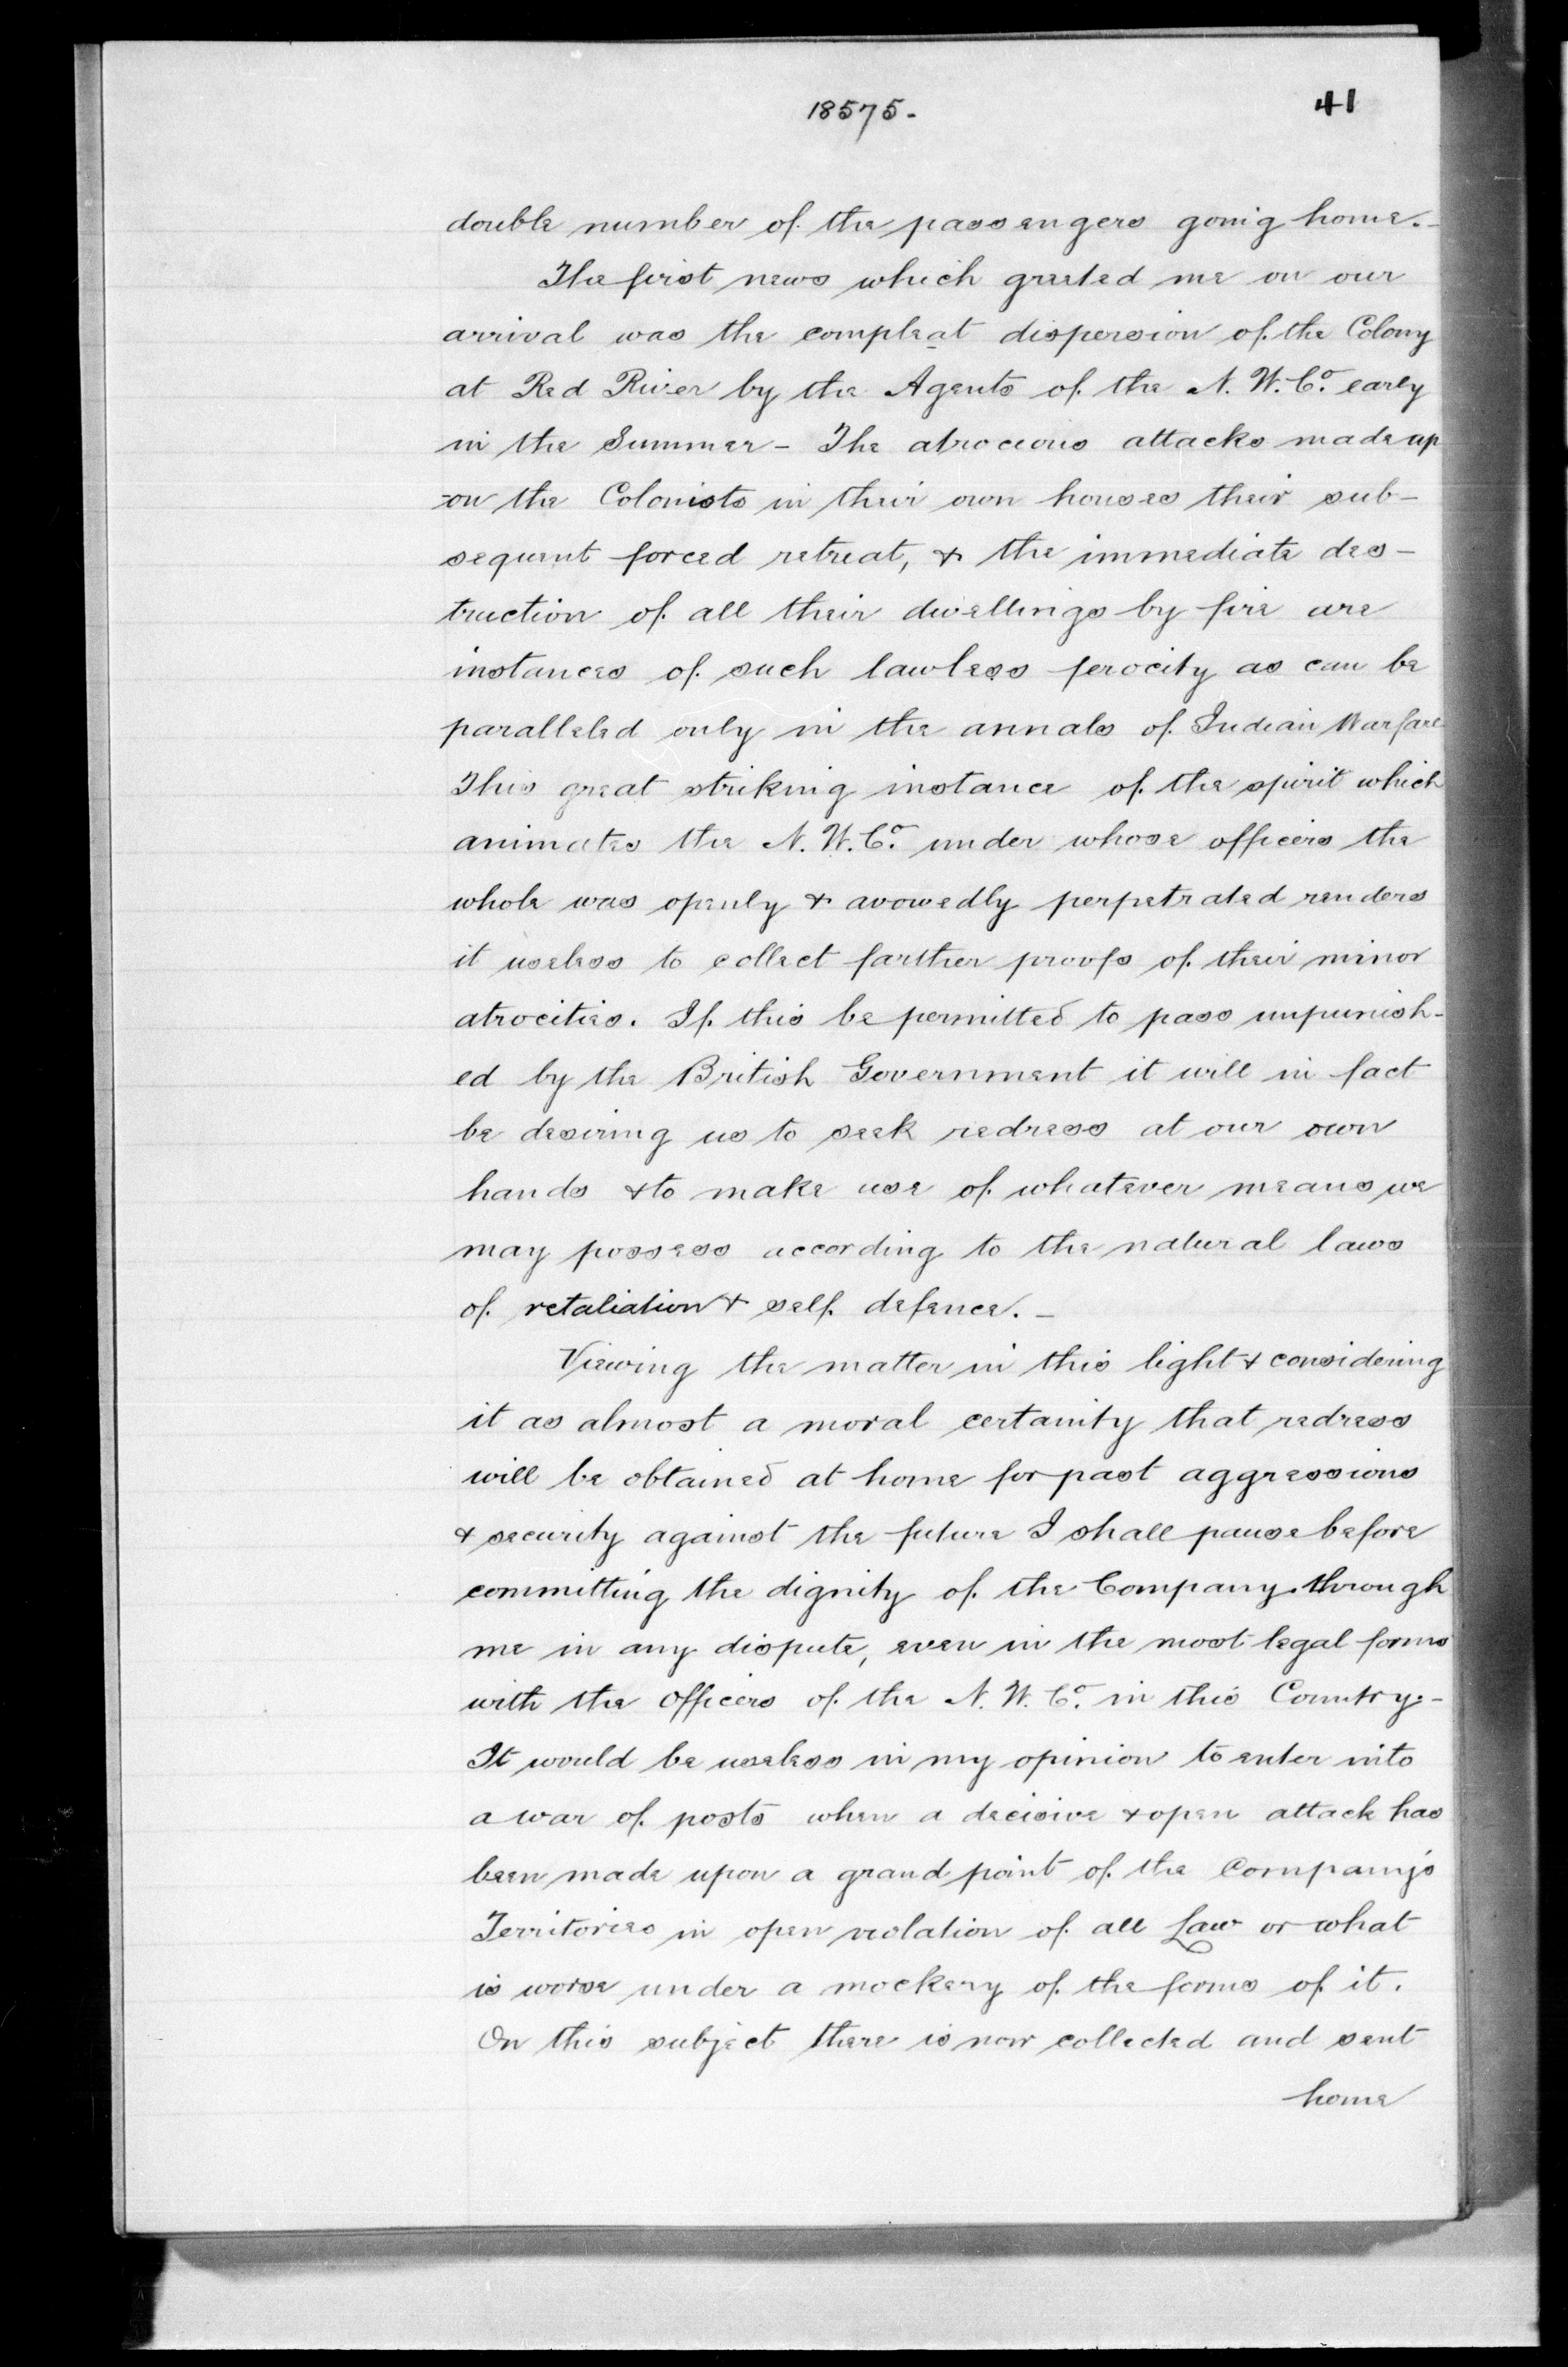 18575.-
41
double number of the passengers going home.-
The first news which greeted me on our
arrival was the compleat dispersion of the Colony
at Red River by the Agents of the N. W. Co. early
in the Summer - The atrocious attacks made up
-on the Colonists in their own houses their sub-
sequent forced retreat, & the immediate des-
truction of all their dwellings by fire are
instances of such lawless ferocity as can be
paralleled only in the annals of Indian Warfare
This great striking instance of the spirit which
animates the N. W. Co. under whose officers the
whole was openly & avowedly perpetrated renders
it useless to collect farther proofs of their minor
atrocities. If this be permitted to pass unpunish-
ed by the British Government it will in fact
be desiring us to seek redress at our own
hands & to make use of whatever means we
may possess according to the natural laws
of retaliation & self defence. -
Viewing the matter in this light & considering
it as almost a moral certainty that redress
will be obtained at home for past aggressions
& security against the future I shall pause before
committing the dignity of the Company through
me in any dispute, even in the most legal forms
with the Officers of the N. W. Co. in this Country.-
It would be useless in my opinion to enter into
a war of posts when a decisive & open attack has
been made upon a grand point of the Company's
Territories in open violation of all Law or what
is worse under a mockery of the forms of it.
On this subject there is now collected and sent
home